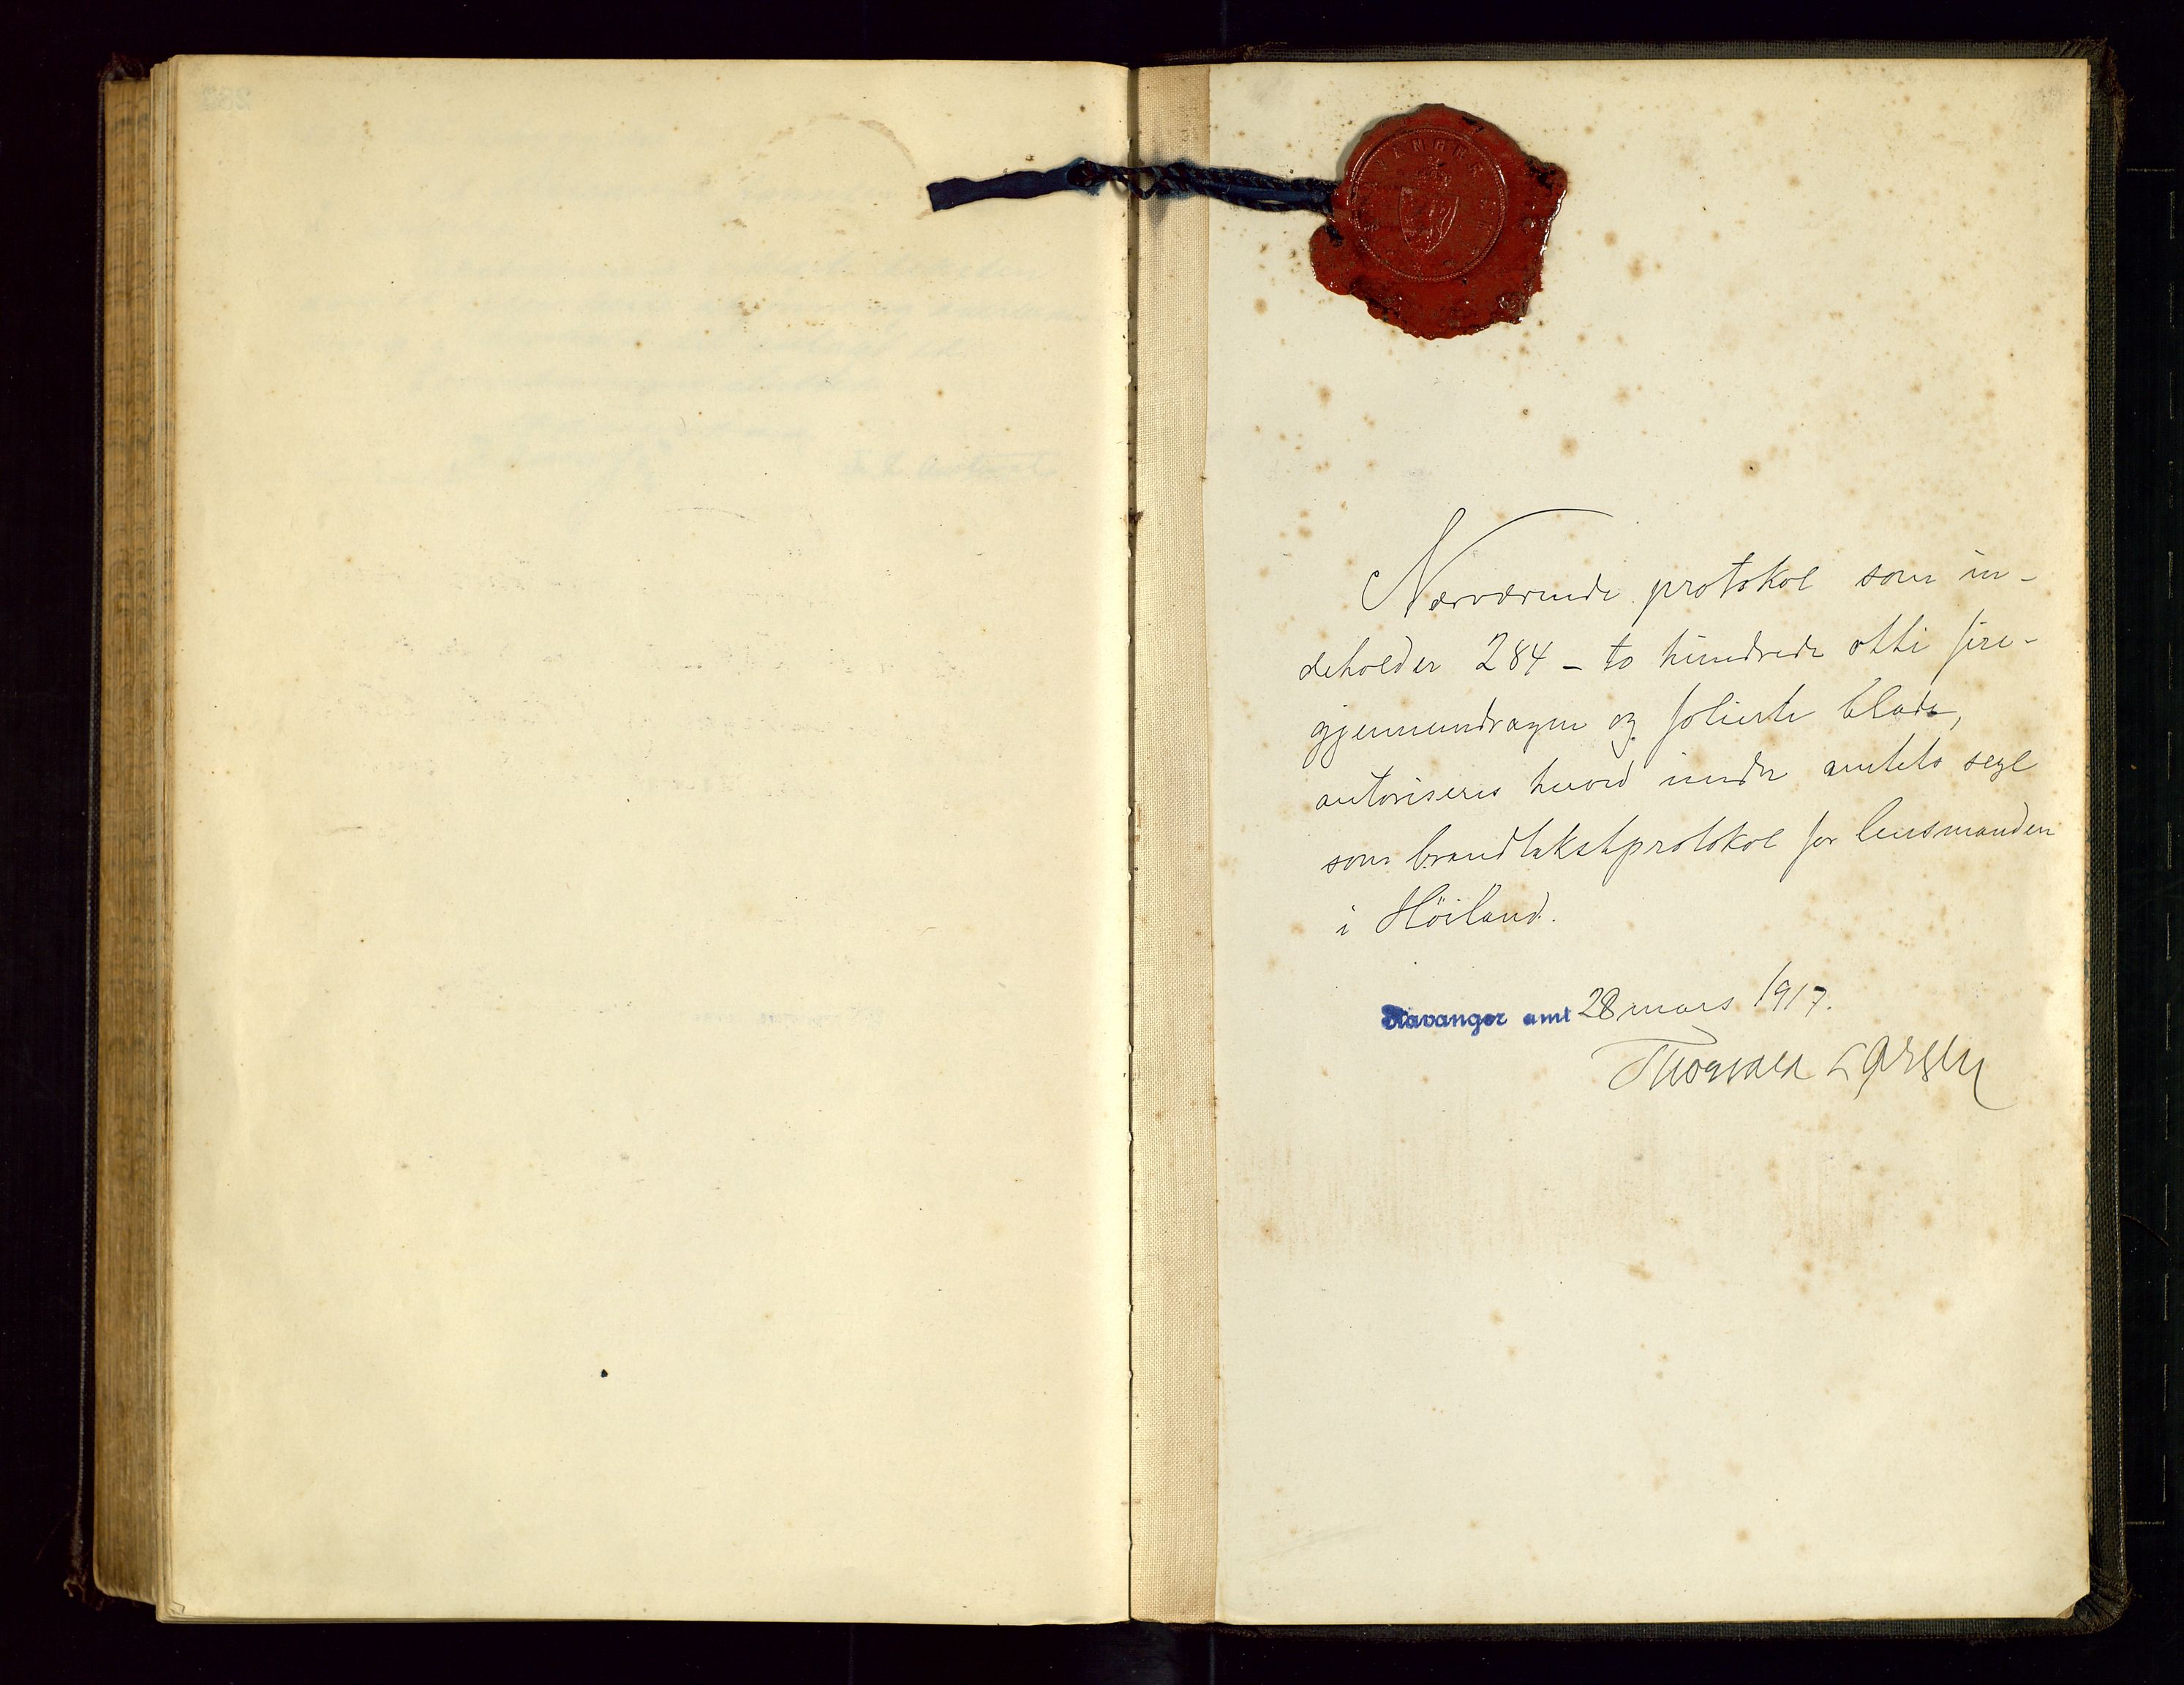 Nærværende protokol som in-
deholder 284 - to hundrede otti fire -
gjennemdragne og folierte blade,
autoriseres herved under amtets segl
som brandtakstprotokol for lensmanden
i Höiland.
Stavanger amt 28 mars 1917.
Thorvald Larsen